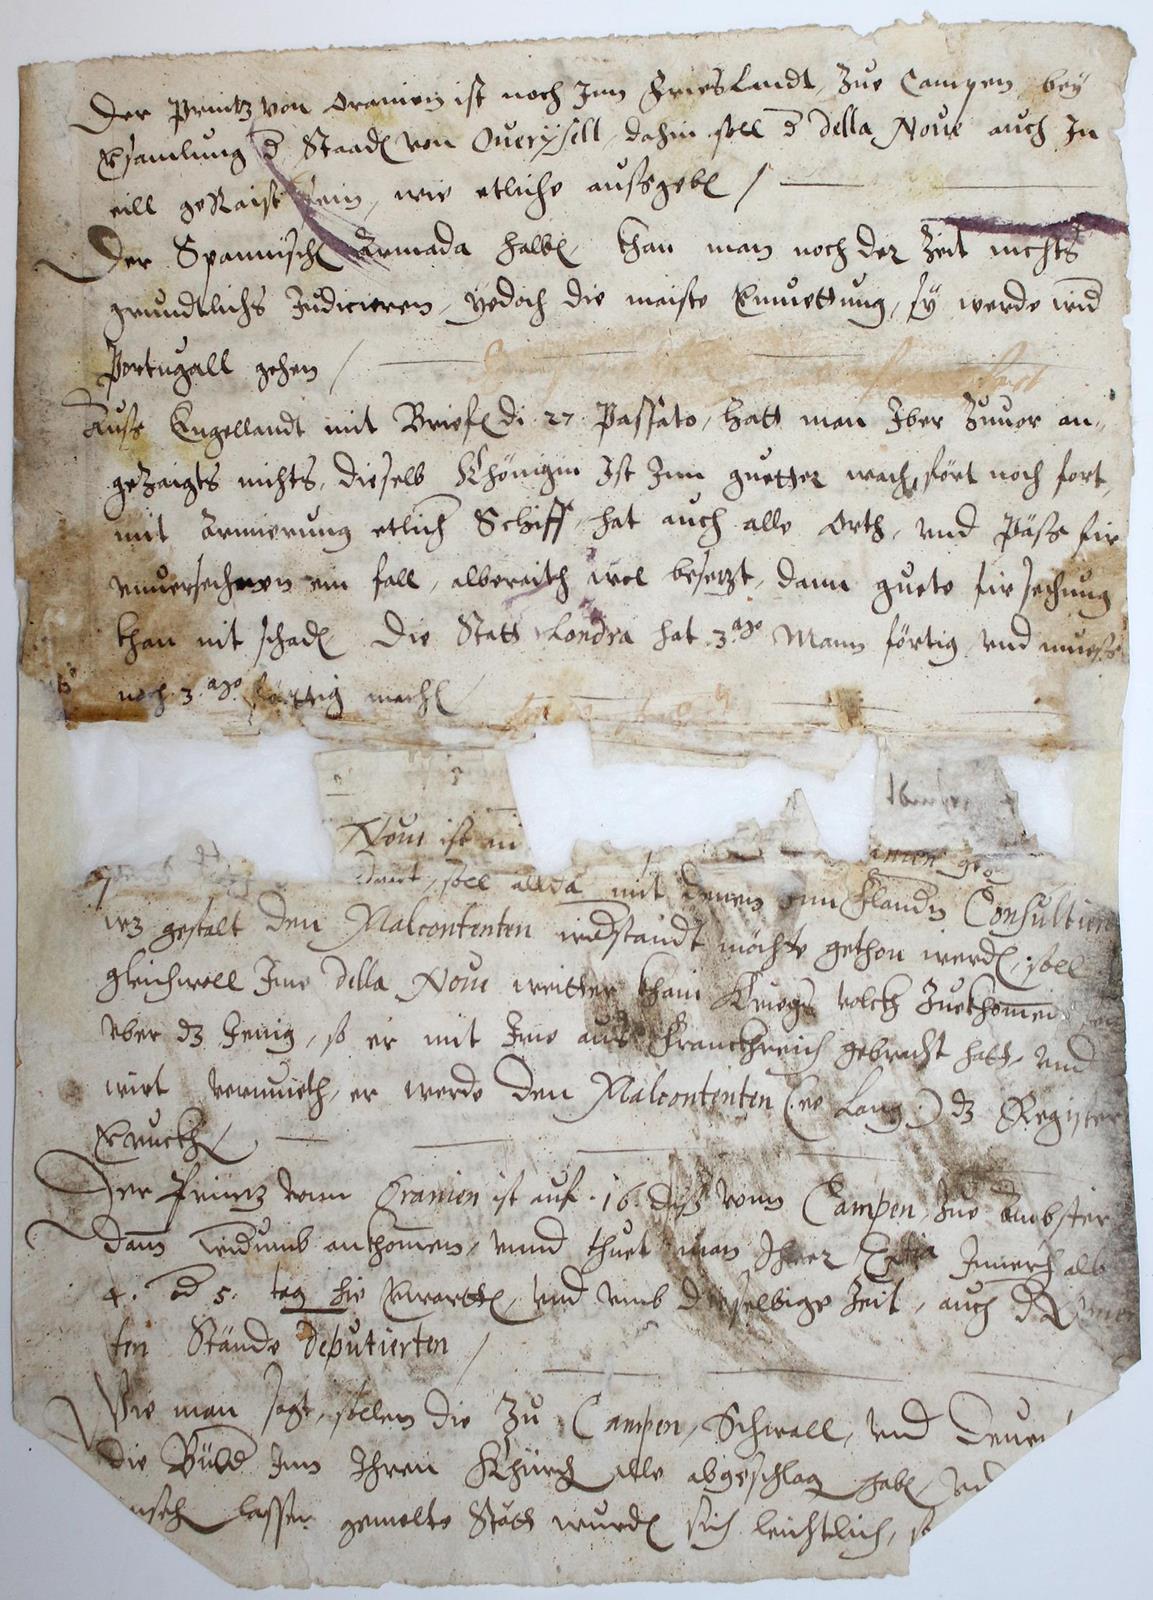 Der Printz von Oranien ist noch Inn Frieslandt, Zue Campen, bey
Vsamlung d Staadn von Ouerÿsell, dahin soll d Della Noue auch In
eill geRaist sein, wie etliche aussgeben /
Der Spannischn Armada halbn, khan man noch der Zeit nichts
grundtlichs Judicieren, yedoch die maiste Vmuettung, sÿ werde wid
Portugall gehen /
Auss Engellandt mit Briefn di 27 Passato, hatt man Iber Zuuor an„
geZaigts nichts, dieselb Khönigin Ist Inn guetter wach, fört noch fort,
mit Armierung etlich Schiff, hat auch alle Orth, vnd Päss fir
vnuersechnen ein fall, alberaith wol besetzt, dann guete firsechung
khan nit schadn Die Statt Londra hat 3 Mann förtig vnd muess
noch 3 förttig machn /
Noue ist in
soll allda mit denen von Flandn Consultiern
wz gestalt den Malcontenten widstandt möchte gethon werdn, soll
gleichwoll Ime Della Noue weitter khain Kriegs volckh Zuekhomen
vber dz Jenig, so er mit Ime auss Franckhreich gebracht hatt, vnd
wirt vermueth, er werde den Malcontenten (:ee Lang:) dz Register
Vruckhn
Der Printz vonn Oranien ist auf 16 diss vonn Campen, Zue Ambster
dam widumb ankhomen, vnnd thuet man Ihrer Extia Innerhalb
4. od 5. tag hie Erwarttn, vnd vmb dieselbige Zeit, auch d
ten Stände deputierten /
Wie man sagt, sollen die Zu Campen, Schwall, vnd Deuen
die Bilder Inn Ihren Khürch alle abgeschlag habn, vnd
lassen gemelte Stätt wurdn sich leichtlich, s